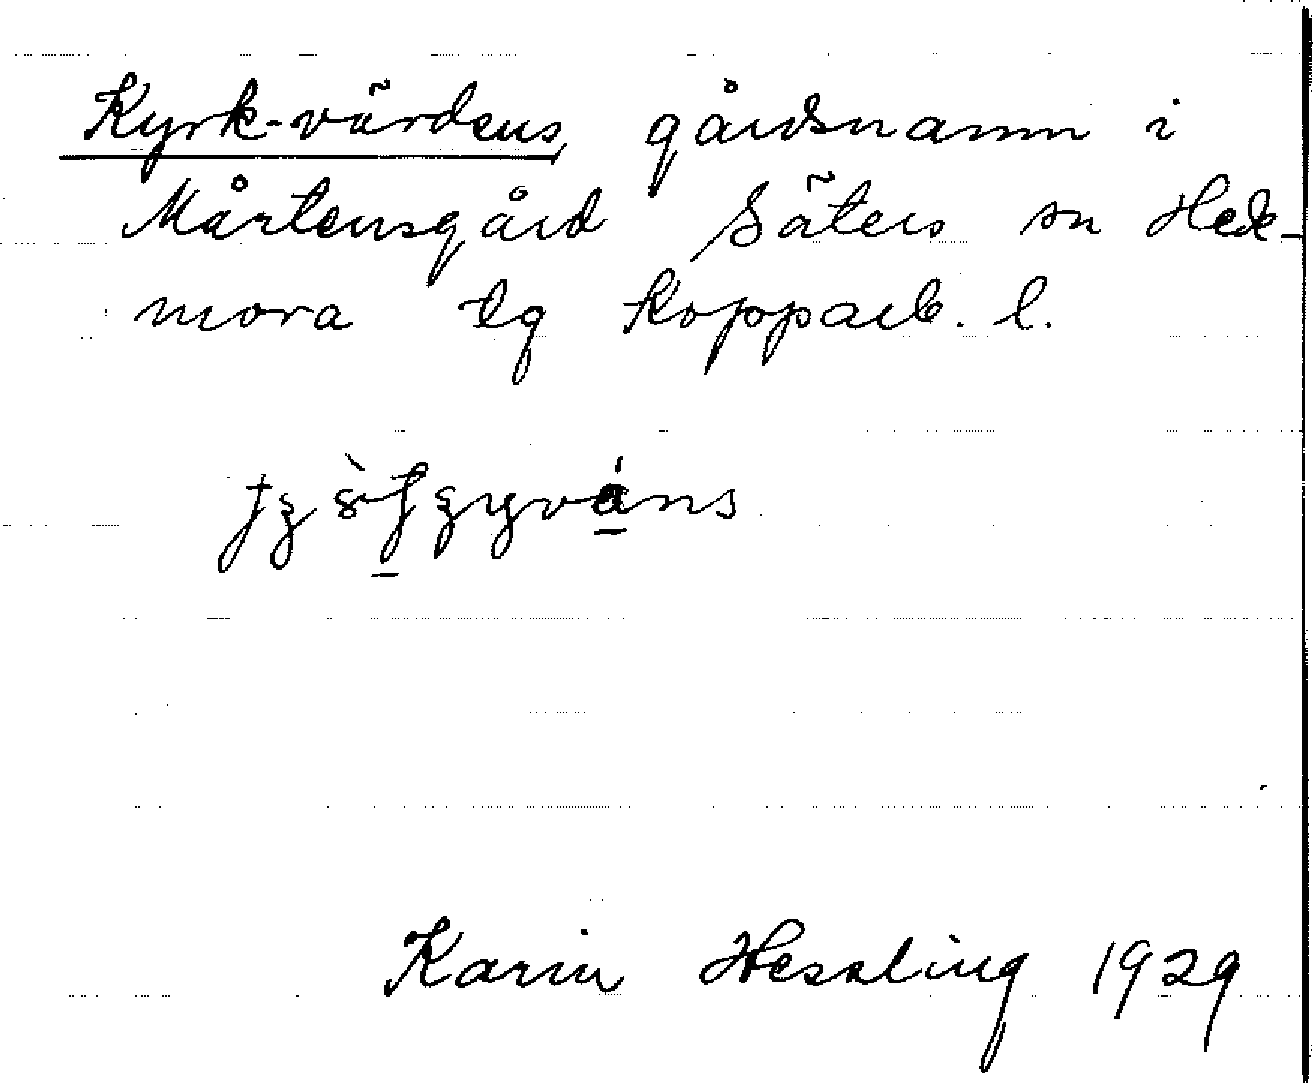 Kyrk-värdens, gårdsnamn i
Mårtensgård Säters sn Hed-
mora tg Kopparb. l.
Karin Hessling 1929